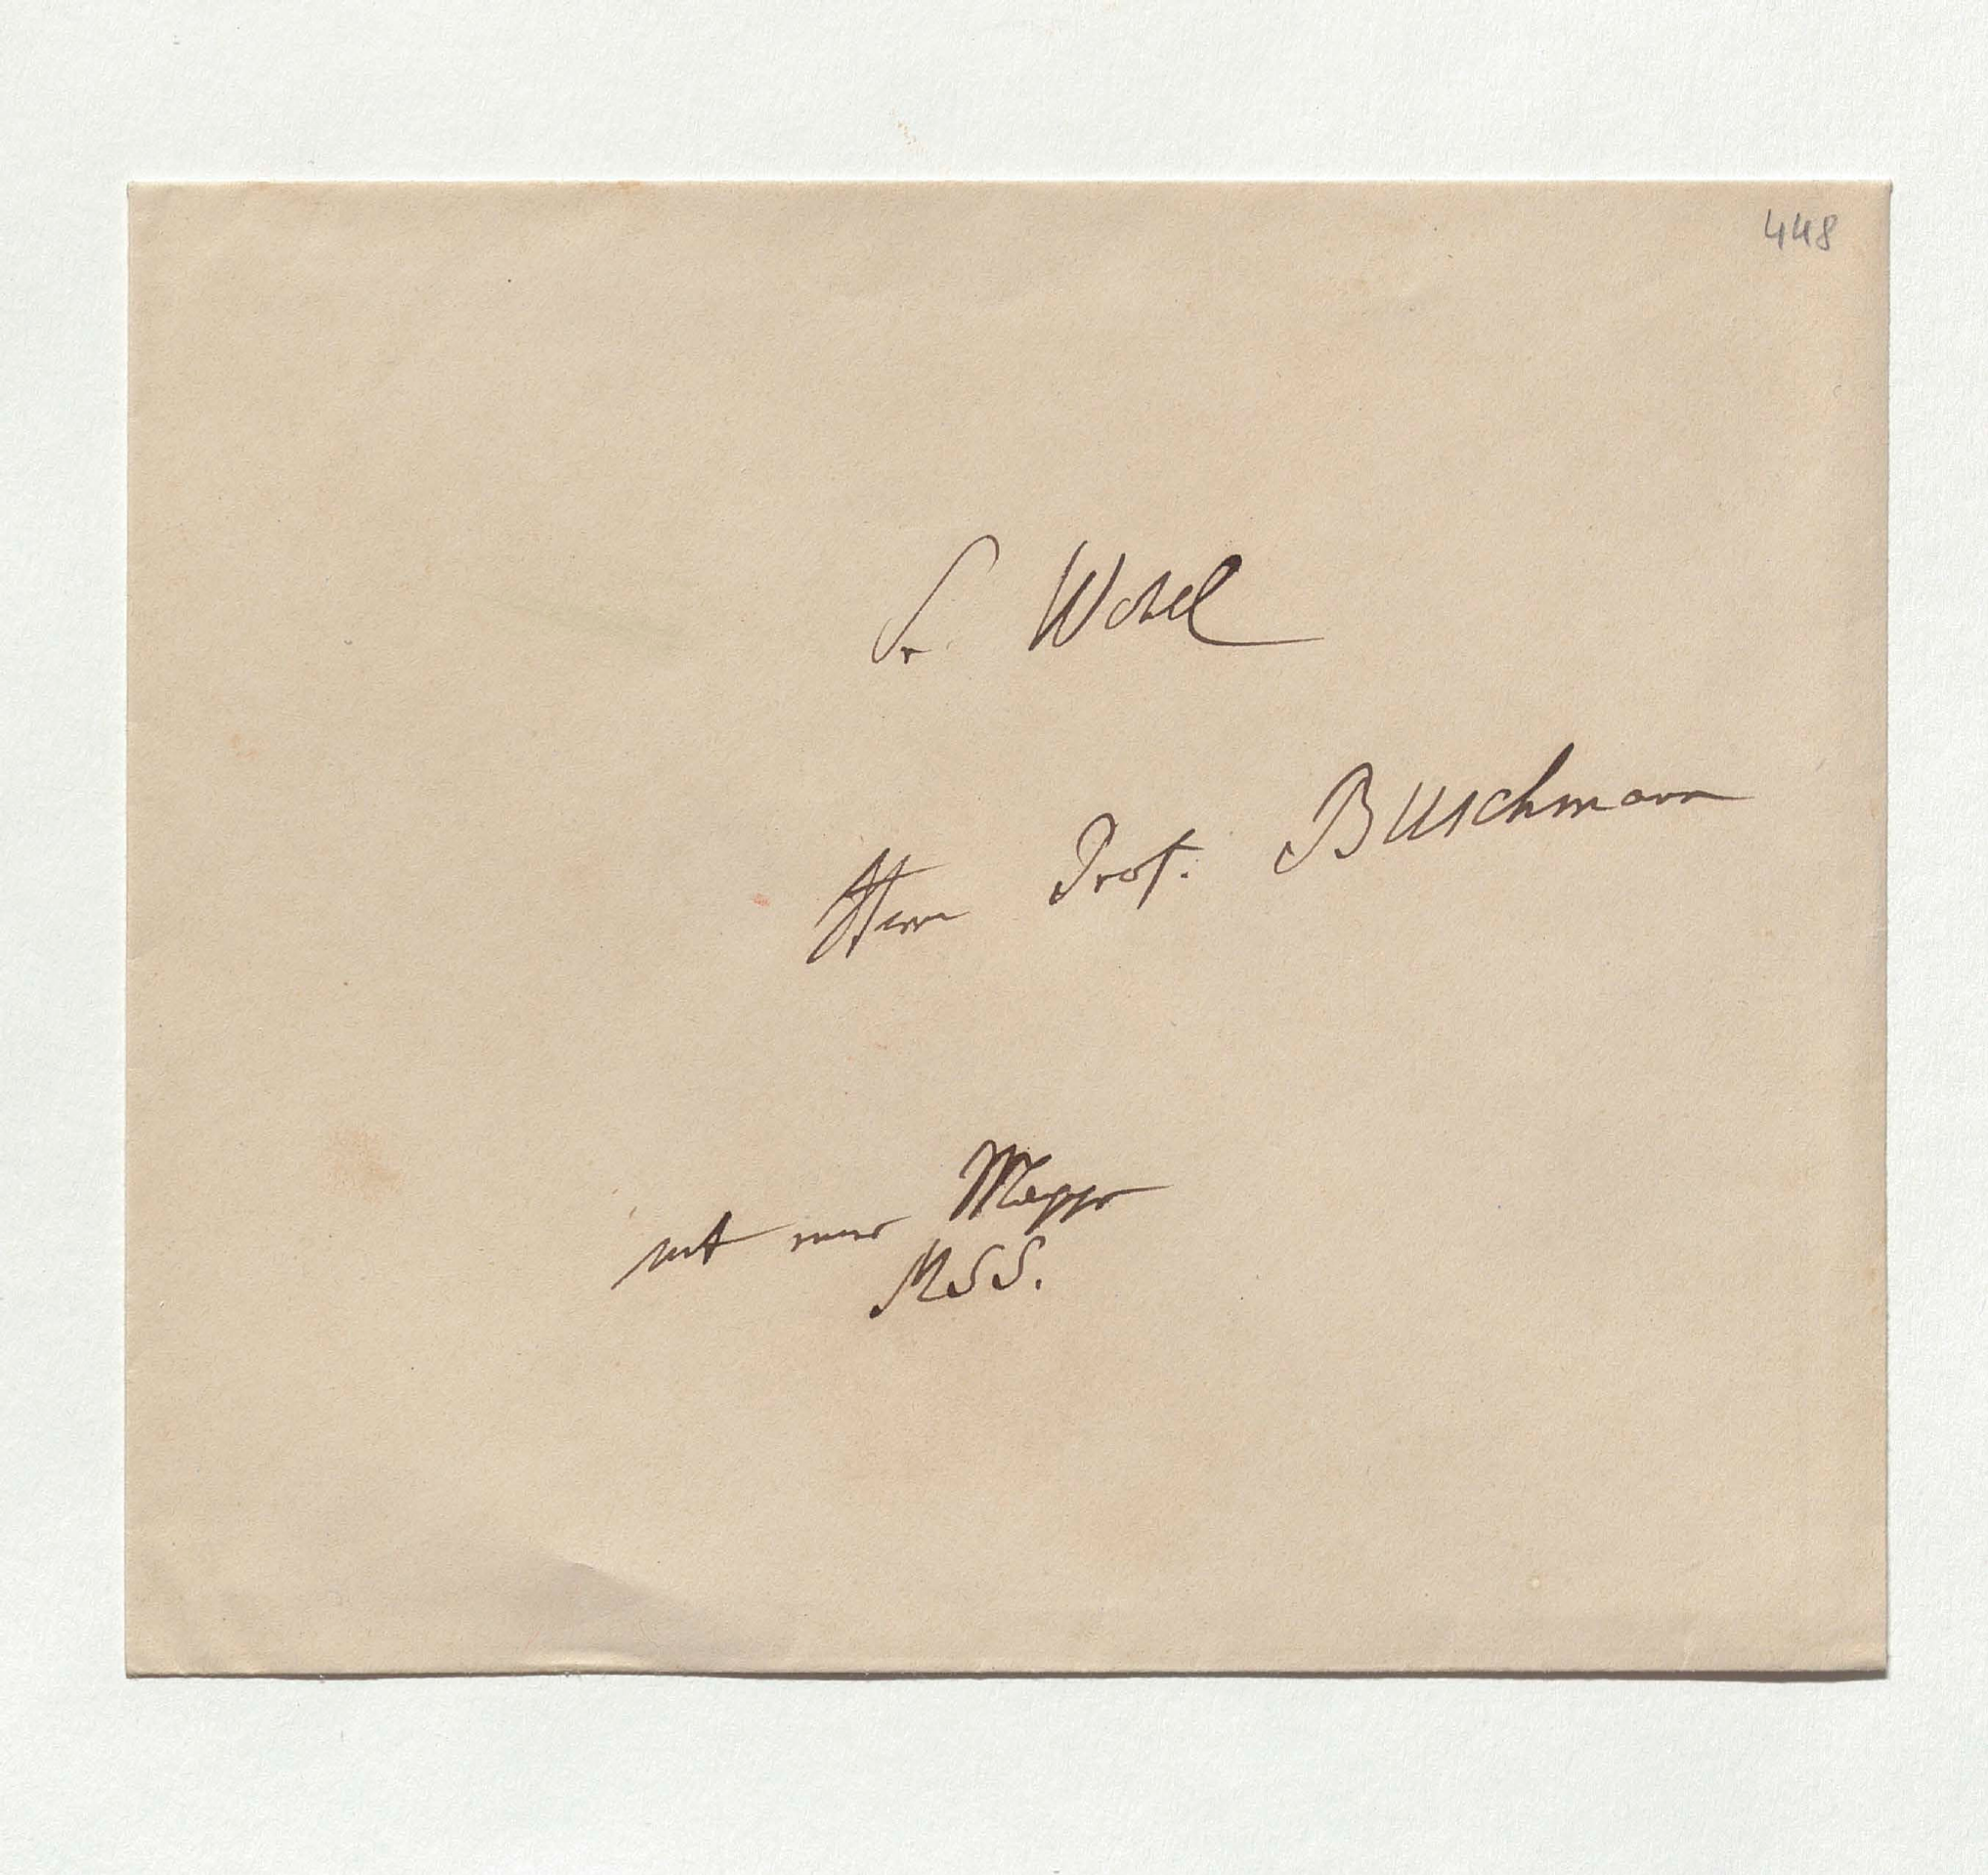 448
Sr. Wohl
Herrn Prof. Buschmann
mit einer Mappe
MSS.